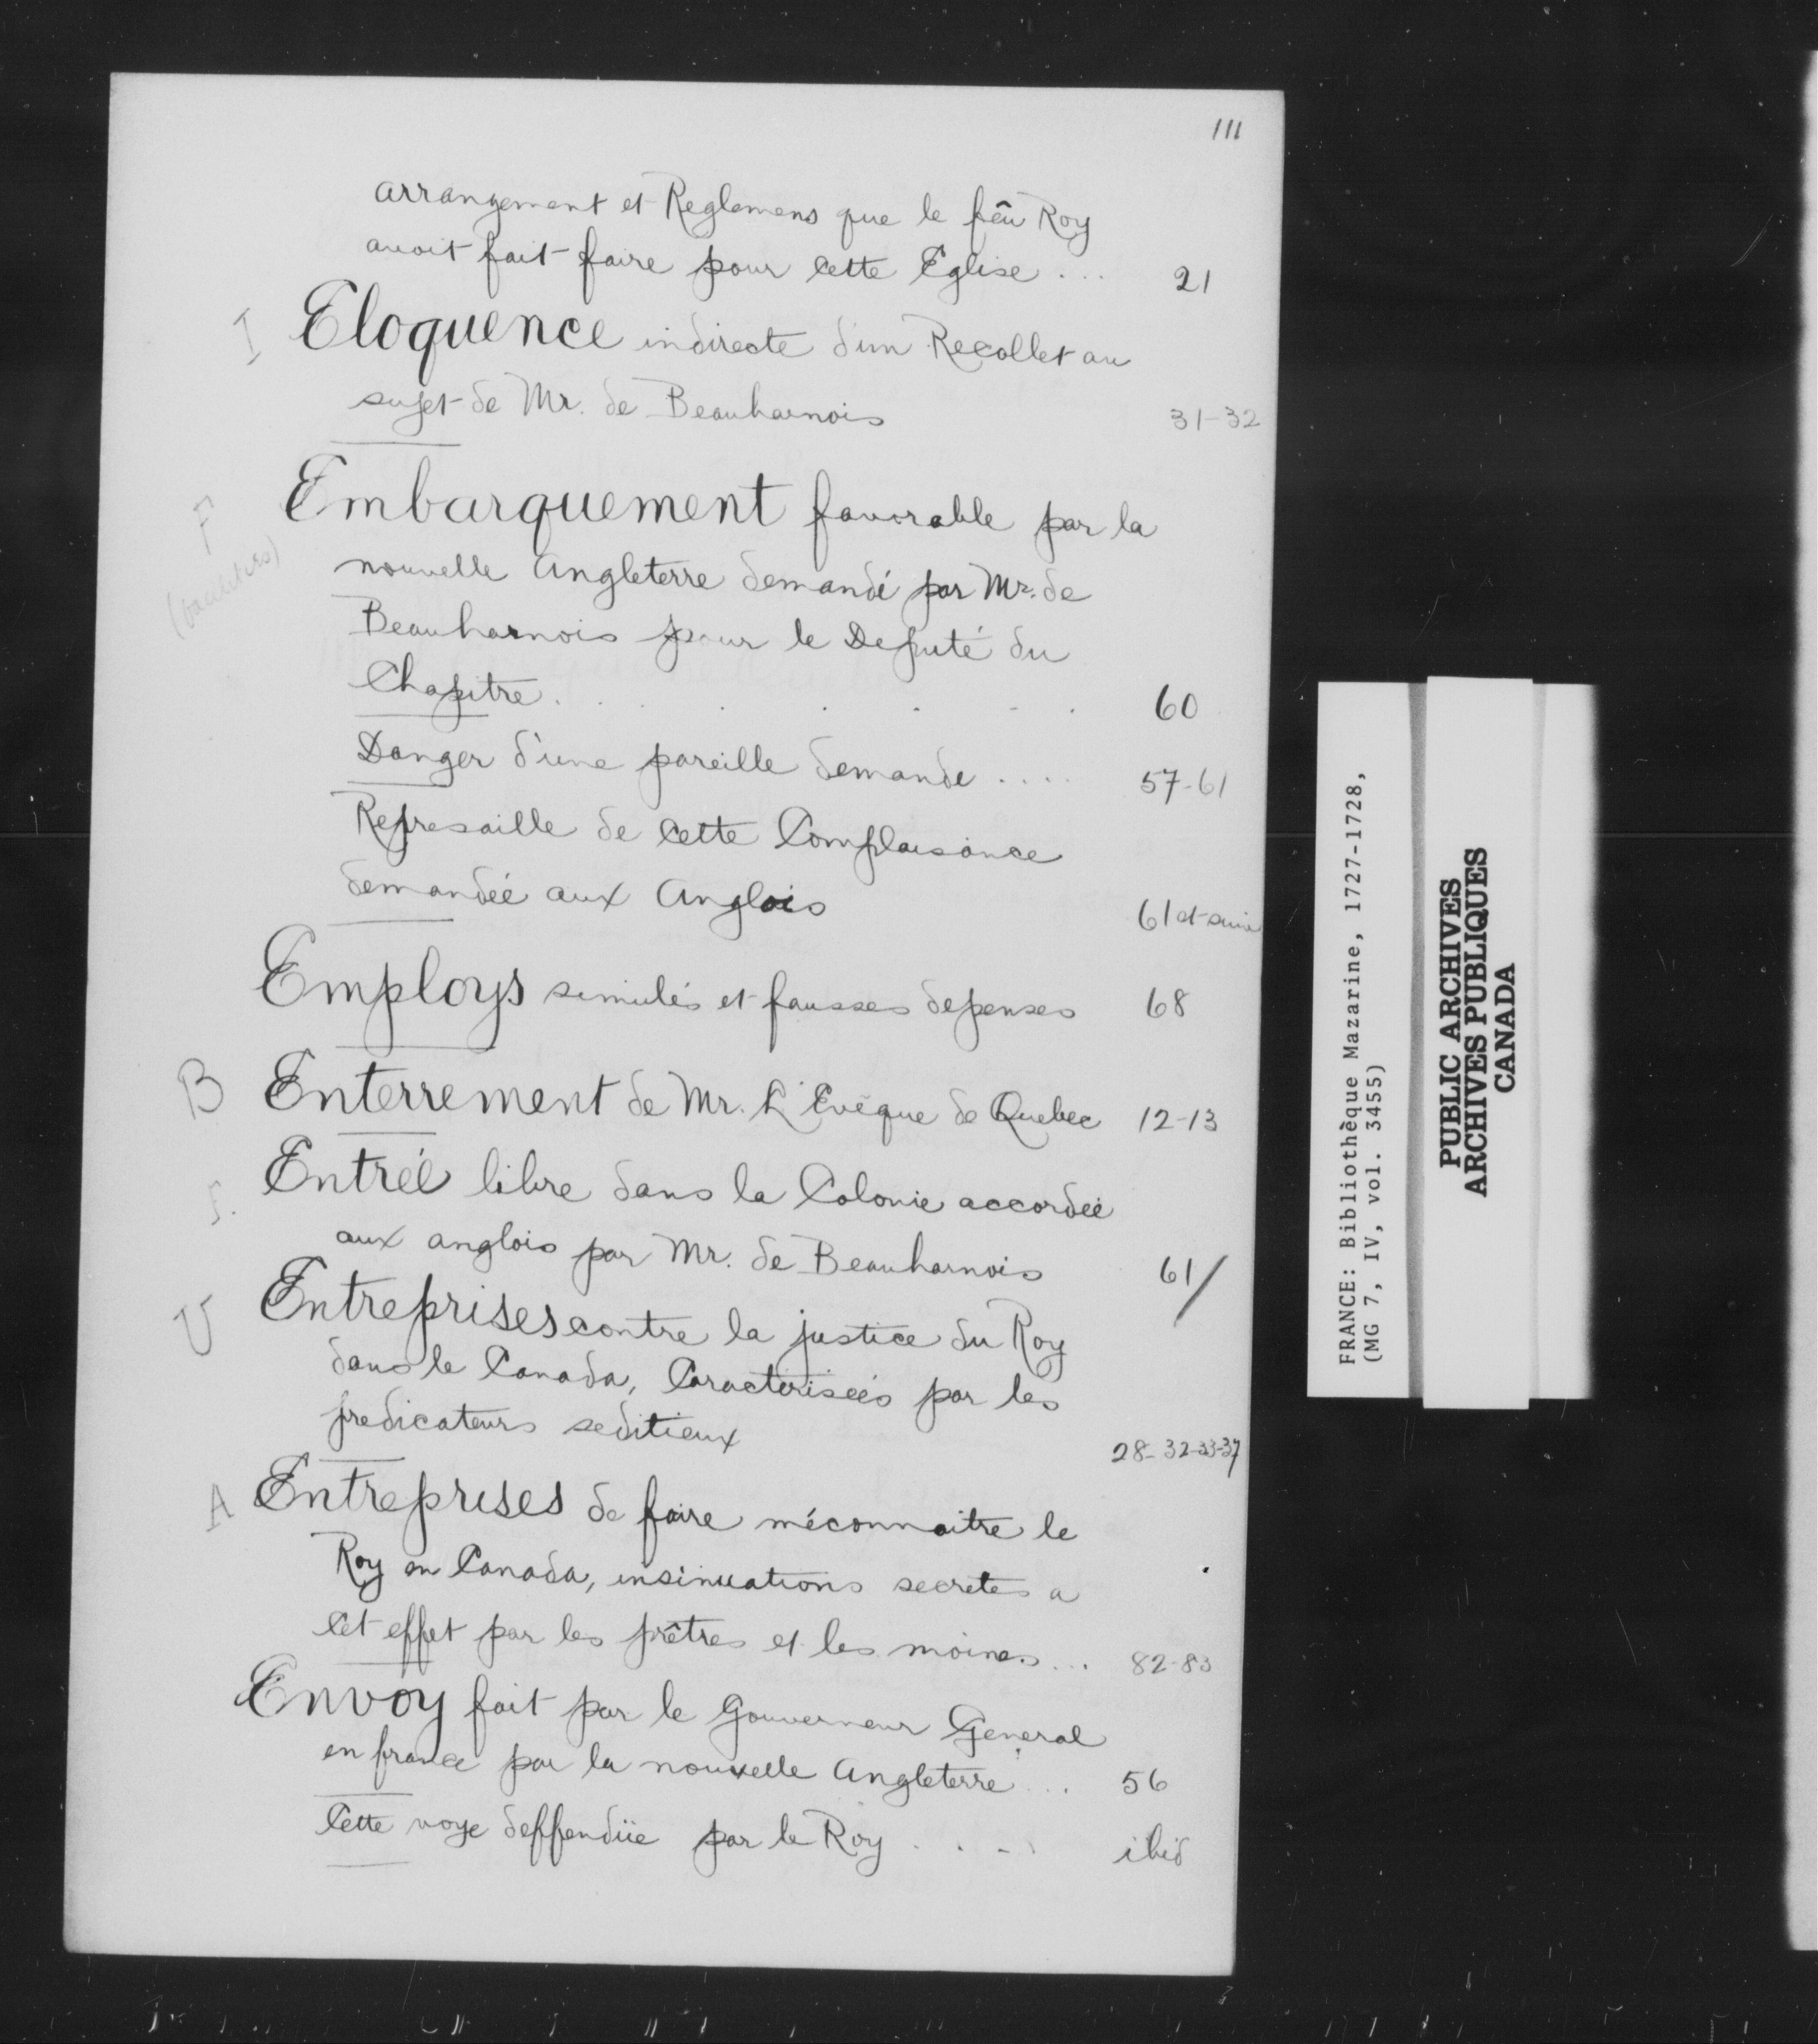 111
arrangement et Reglemens que le feû Roy
avoit fait faire pour Cette Eglise ... 21
I Eloquence indirecte d'un Recollet au
sujet de Mr. de Beauharnois 31-32
F Embarquement favorable par la
nouvelle Angleterre demandé par Mr. de
Beauharnois pour le Deputé du
Chapitre . . . . . . . 60
Danger d'une pareille demande .... 57-61
Represaille de Cette Complaisance
demandée aux Anglois 61 et suiv
Employs simulés et fausses depenses 68
B Enterrement de Mr. L'Evêque de Quebec 12-13
Entrée libre dans la Colonie accordée
aux anglois par Mr. de Beauharnois 61/
U Entreprises contre la justice du Roy
dans le Canada, Caracterisées par les
predicateurs seditieux 28-32-33-37
A Entreprises de faire méconnaitre le
Roy en Canada, insinuations secretes a
Cet effet par les prêtres et les moines ... 82-83
Envoy fait par le Gouverneur General
en france par la nouvelle Angleterre ... 56
Cette voye deffendüe par le Roy . . . . ibid
FRANCE: Bibliothèque Mazarine, 1727-1728,
(MG 7, IV, vol. 3455)
PUBLIC ARCHIVES
ARCHIVES PUBLIQUES
CANADA